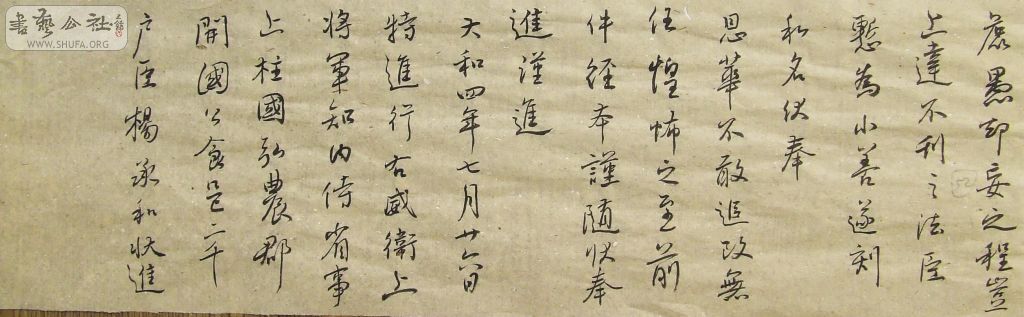 蔗愚却妄之程岂
上達不刊之法臣
慙為小善遂刻
私名伏奉
恩華不敢追改無
任惶怖之至前
件経本謹随状奉
進謹進
大和四年七月廿六日
特進行右威衛上
将軍知内侍省事
上柱國弘農郡
開國公食邑二千
户臣楊承和状進
書藝公社
WWW.SHUFA.ORG